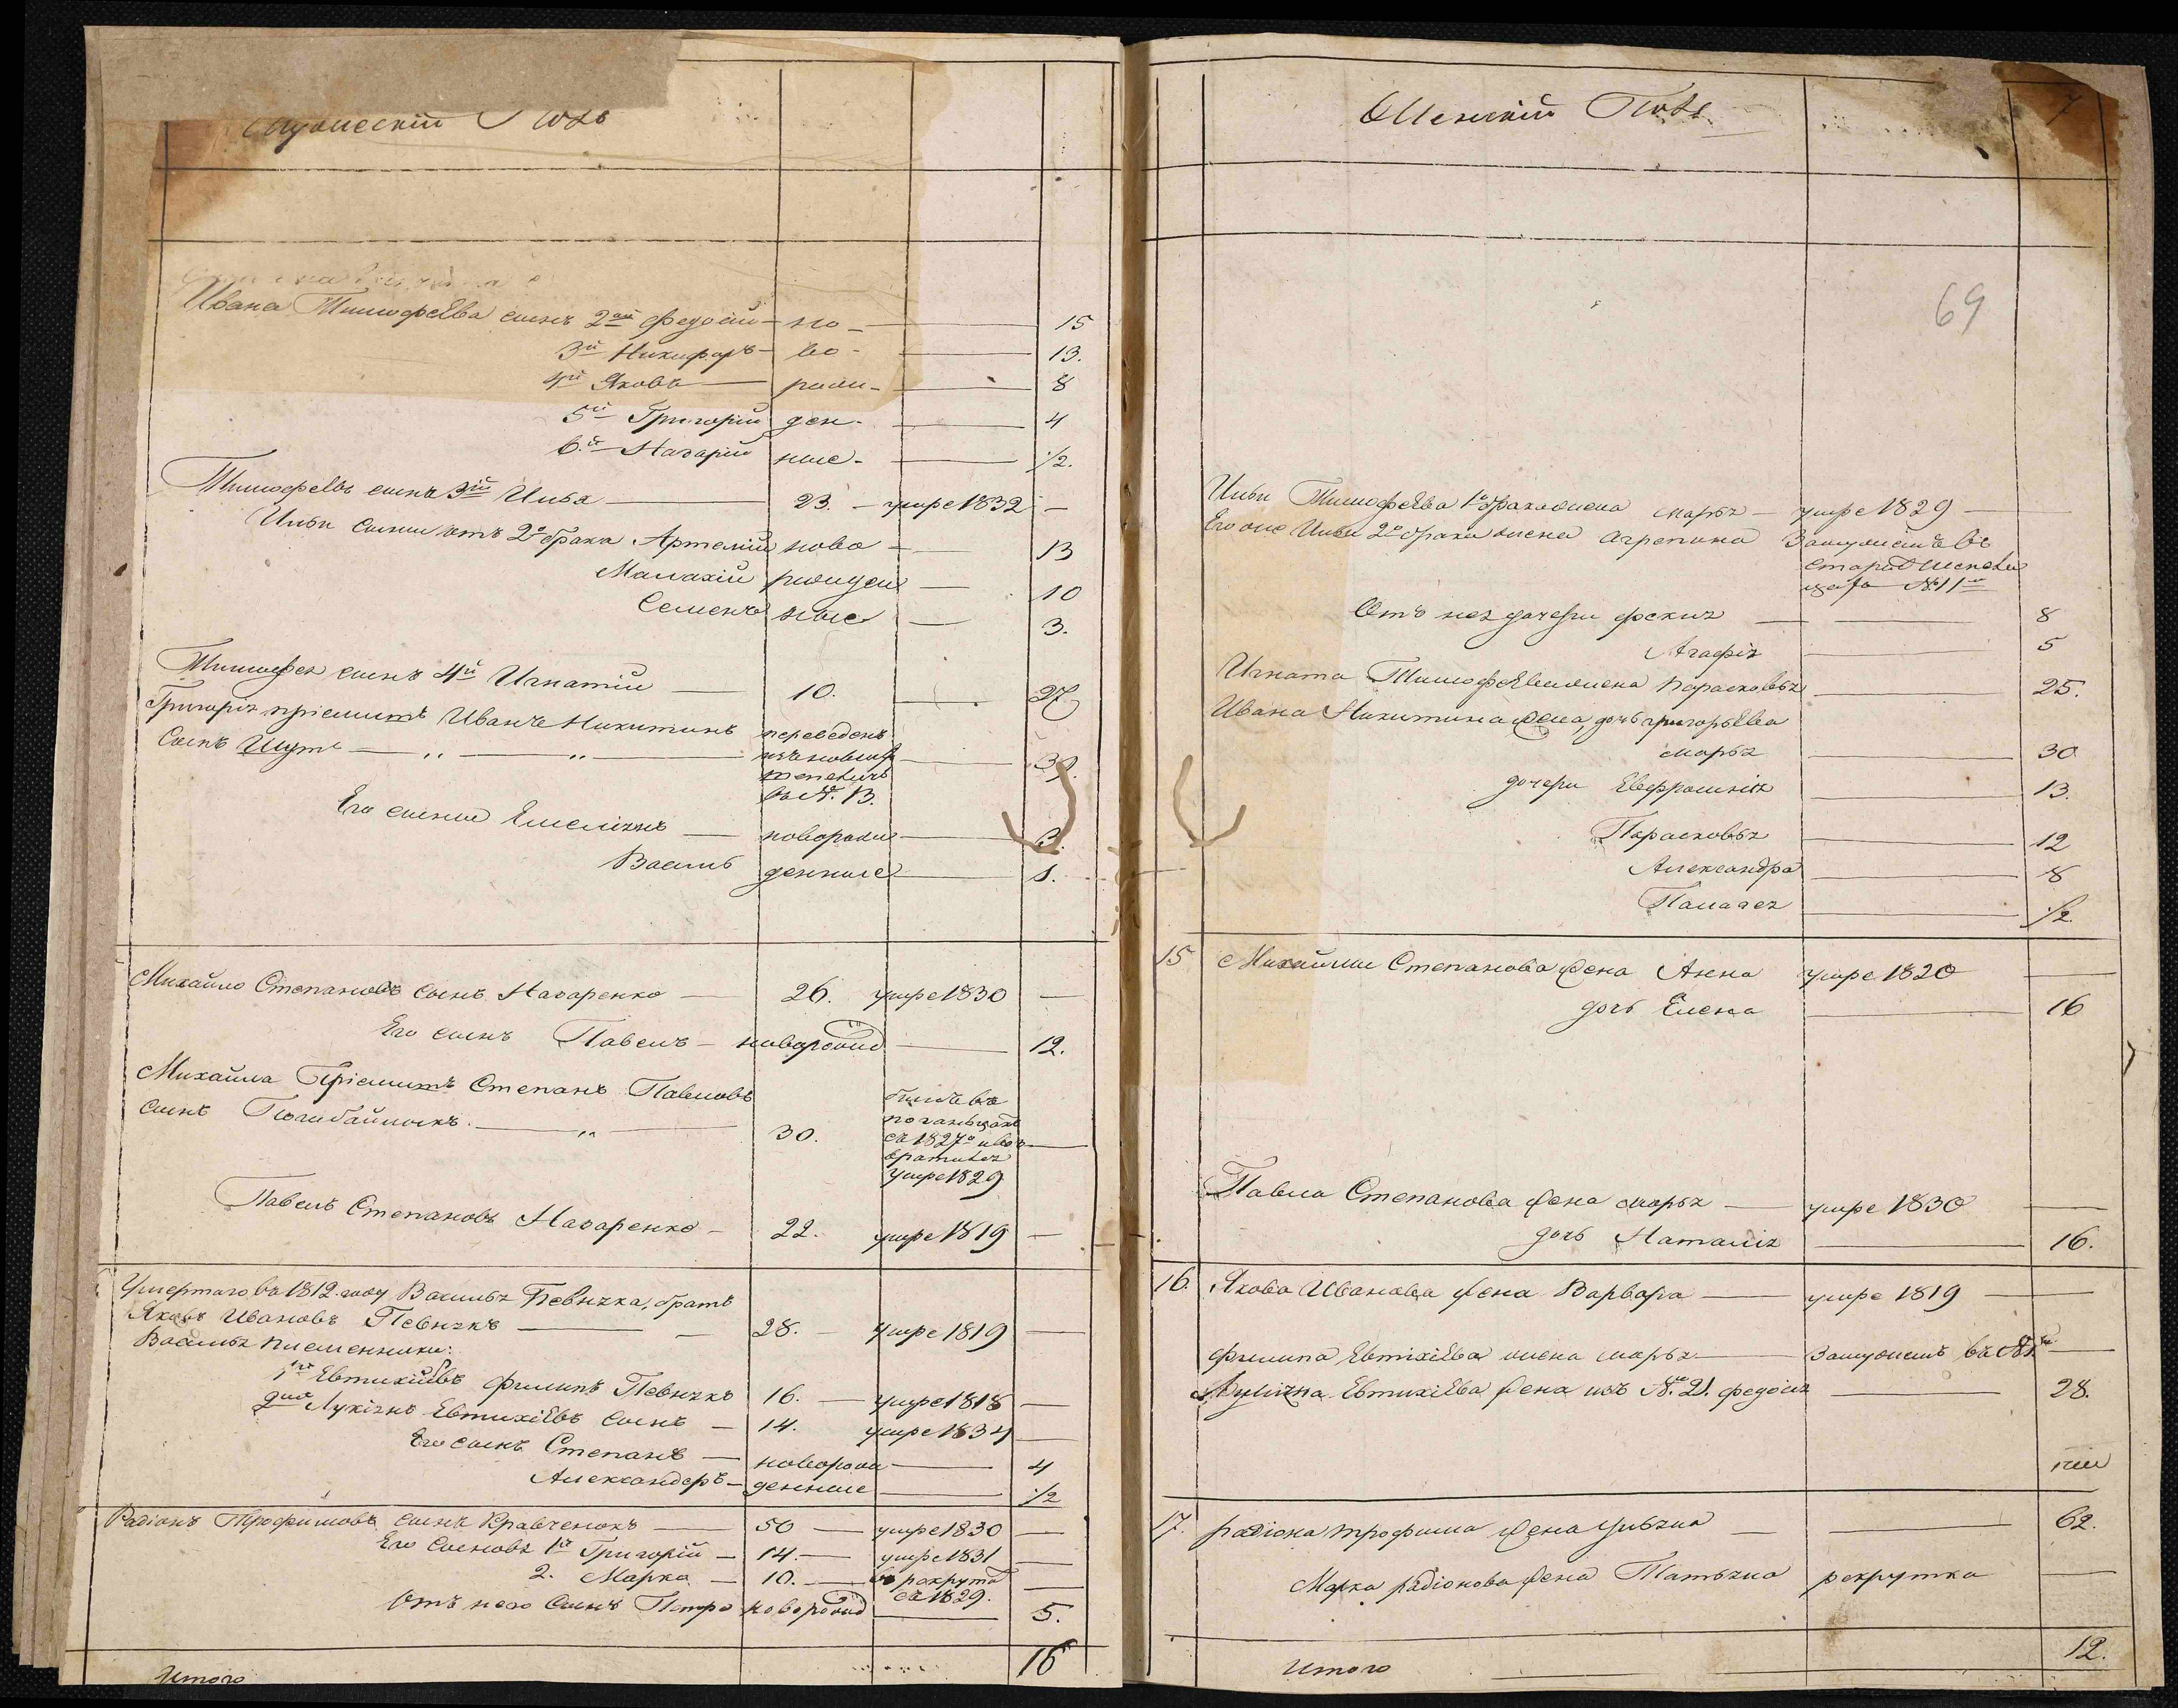 Мужескій Полъ
Ивана Тимофѣева сынъ 2ой Федосій но- 15
3й Никифоръ во- 13.
4й Яковъ рож- 8
5й Григорій ден- 4
6й Назарій ные- 1/2.
Тимофѣевъ сынъ 3ій Илья 23. умре 1832
Ильи сыны отъ 2го брака Артемій ново 13
Малахій рожден 10
Семенъ ные 3.
Тимофея сынъ 4й Игнатій 10. 27
Григорія пріемышъ Иванъ Никитинъ переведенъ
сынъ Шутъ 30.
въ №. 13.
Его сыны Емеліянъ новорож 3.
Василь денные 1.
Михайло Степановъ сынъ Назаренко 26. умре 1830
Его сынъ Павелъ новорожд 12.
Михайла Пріемышъ Степанъ Павловъ
сынъ 30.
съ 1827го
умре 1829
Павелъ Степановъ Назаренко 22. умре 1819
Умершаго въ 1812. году Василья Певнька, братъ
Яковъ Ивановъ Певнякъ 28. умре 1819
Василья племенники:
1й Евтихіевъ Филипъ Певнякъ 16. умре 1818
2й Лукіянъ Евтихіевъ сынъ 14. умре 1834
Его сынъ Степанъ новорож 4
Александеръ денные 1/2
Радіонъ Трофимовъ сынъ Кравченокъ 50 умре 1830
Его сыновья 1й Григорій 14. умре 1831
2. Марко 10. въ рекрута
съ 1829.
Отъ него сынъ Петро новорожд 5.
Итого 16
Женскій Полъ 7
69
Ильи Тимофѣева 1го брака жена марья умре 1829
Его же Ильи 2го брака жена агрепина Замужемъ въ
№ 11
Отъ нея дочери фекла 8
Агафія 5
Игната Тимофѣева жена Парасковья 25.
Ивана Никитина жена, дочь григорьева
марья 30
дочери Евфросинія 13.
Парасковья 12
Александра 8
Палагея 1/2.
15 Михайлы Степанова жена Анна умре 1820
дочь Елена 16
Павла Степанова жена марья умре 1830
дочь Наталія 16.
16. Якова Иванова жена Варвара умре 1819
Филипа Евтихіева жена марья Замужемъ въ №
Лукіяна Евтихіева жена изъ №. 21. федосія 28.
17. радіона трофима жена ульяна 62.
Марка радіонова жена Татьяна рекрутка
Итого 12.